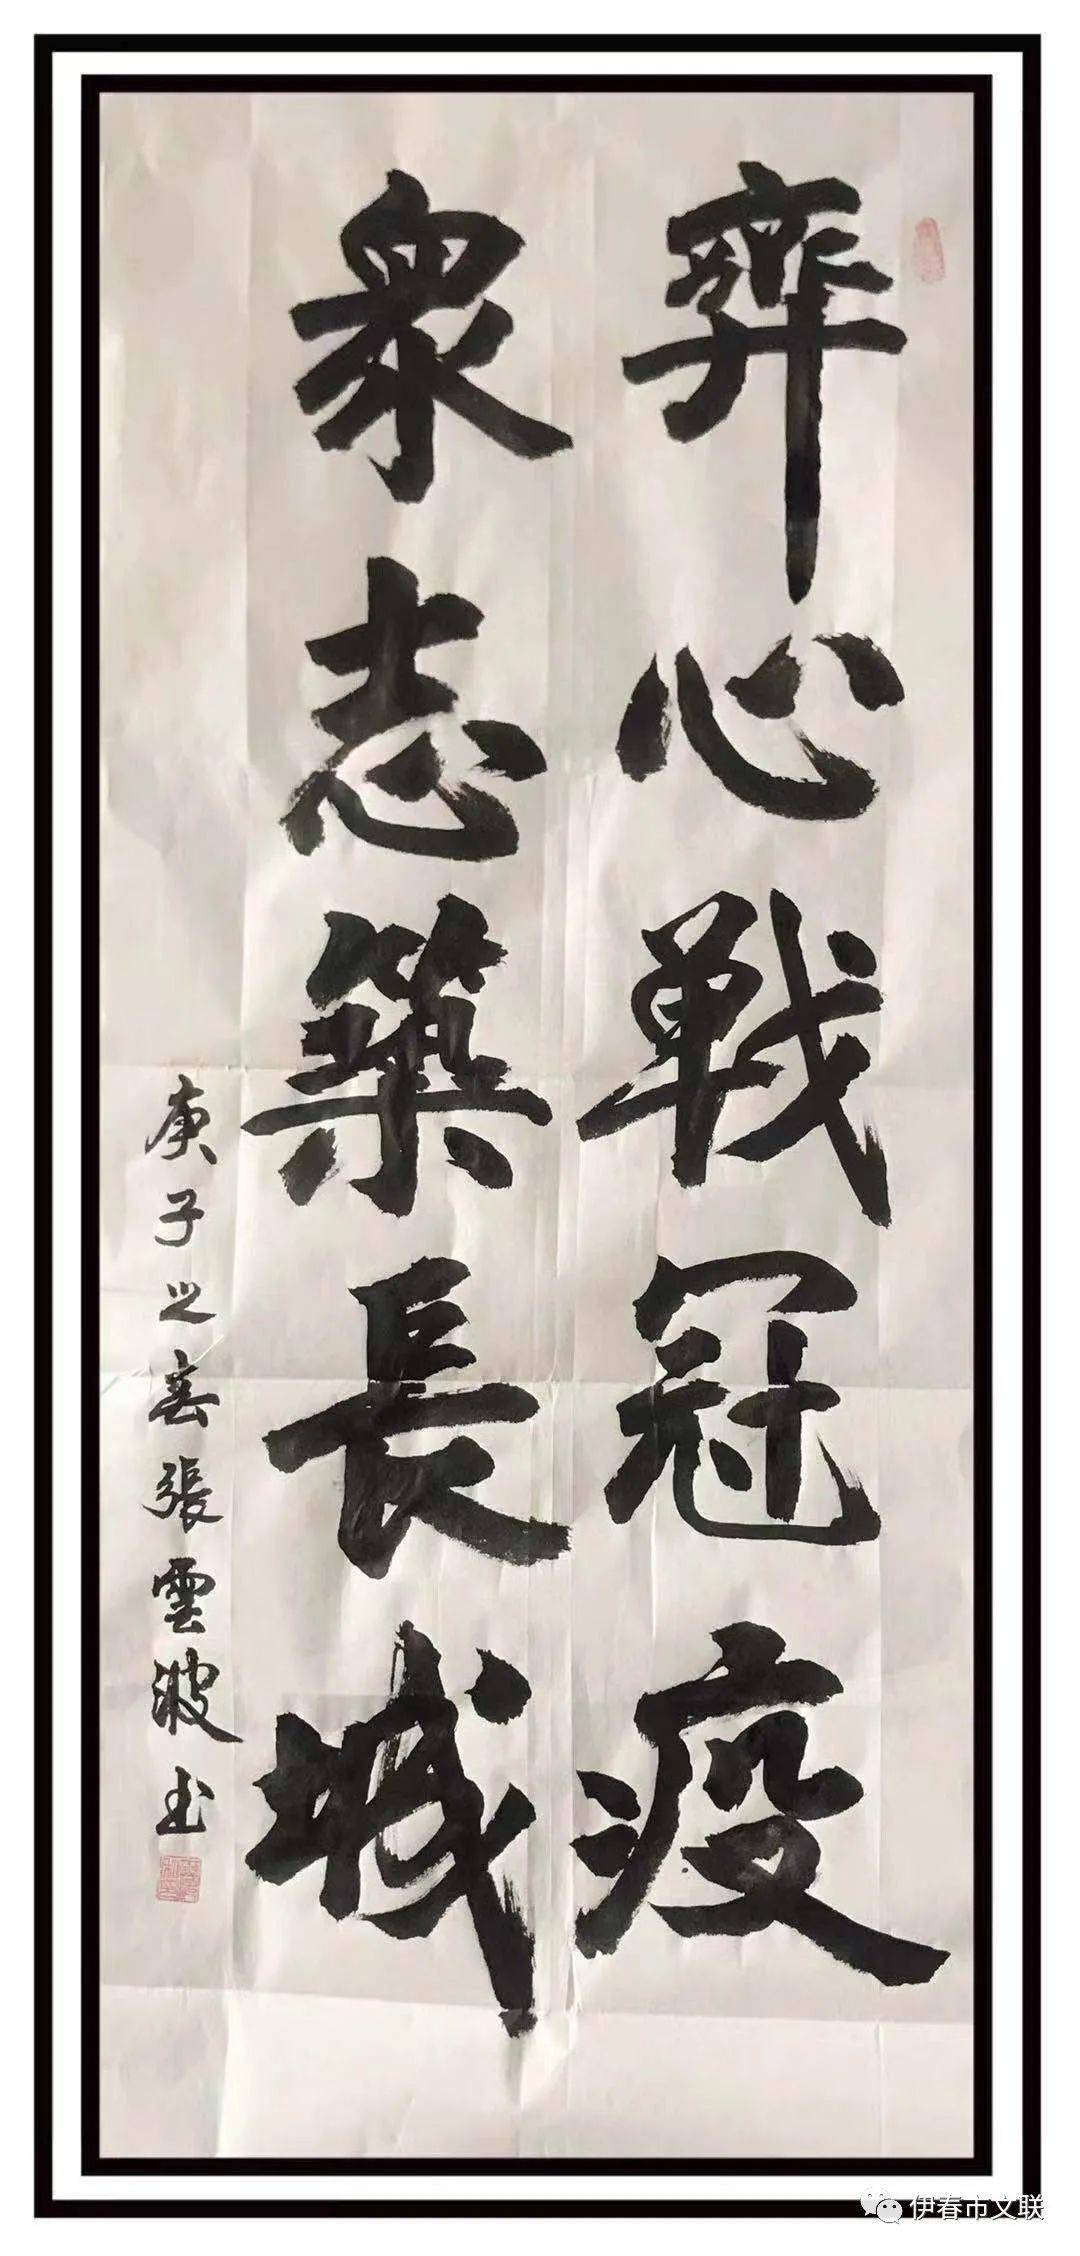 齊心戰冠疫
衆志築長城
庚子之春張雲波书
伊春市文联